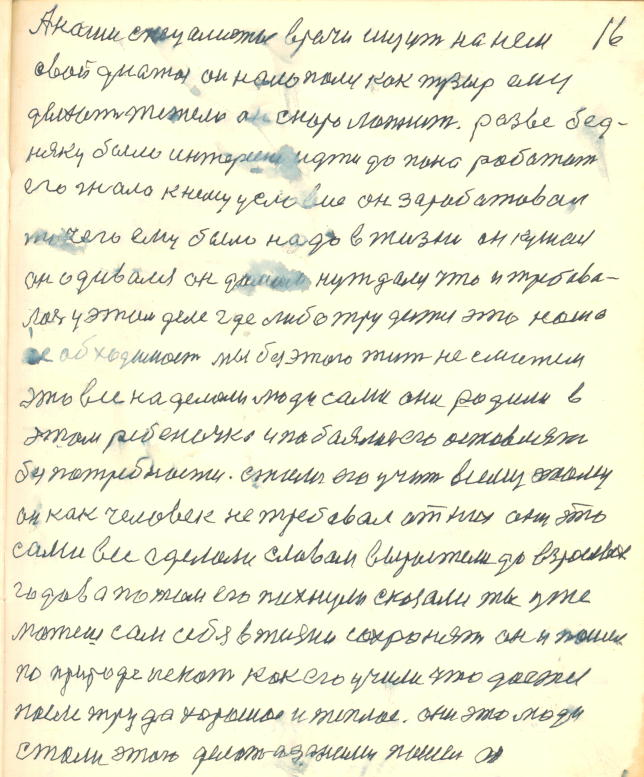 А наши специалисты врачи ищут на нем 16
свой диагноз он налы полу как пузыр ему
движат тежело он скоро ложит. разве бед-
няку было интересно идти до пана работат
его гнало к нему условие он зарабатовал
чего ему было надо в жизни он кушал
он одивался он домом нуждалу что и требова-
лос у этом деле где либо трудится это наша
не обходимост мы без этого жит не сможем
это все наделали люди сами они родили в
этом ребеночка и побаялис его оставлят
без потребности. стали его учит всему этому
он как человек не требовал от них они это
сами все сделали словам вырастили до взрослых
годов а потом его пихнули сказали ты уже
можеш сам себя в жизни сохронят он и пошел
по природе искат как его учили что достет
после труда хорошое и теплое. они это люди
стали этого делат а за ними пошел и